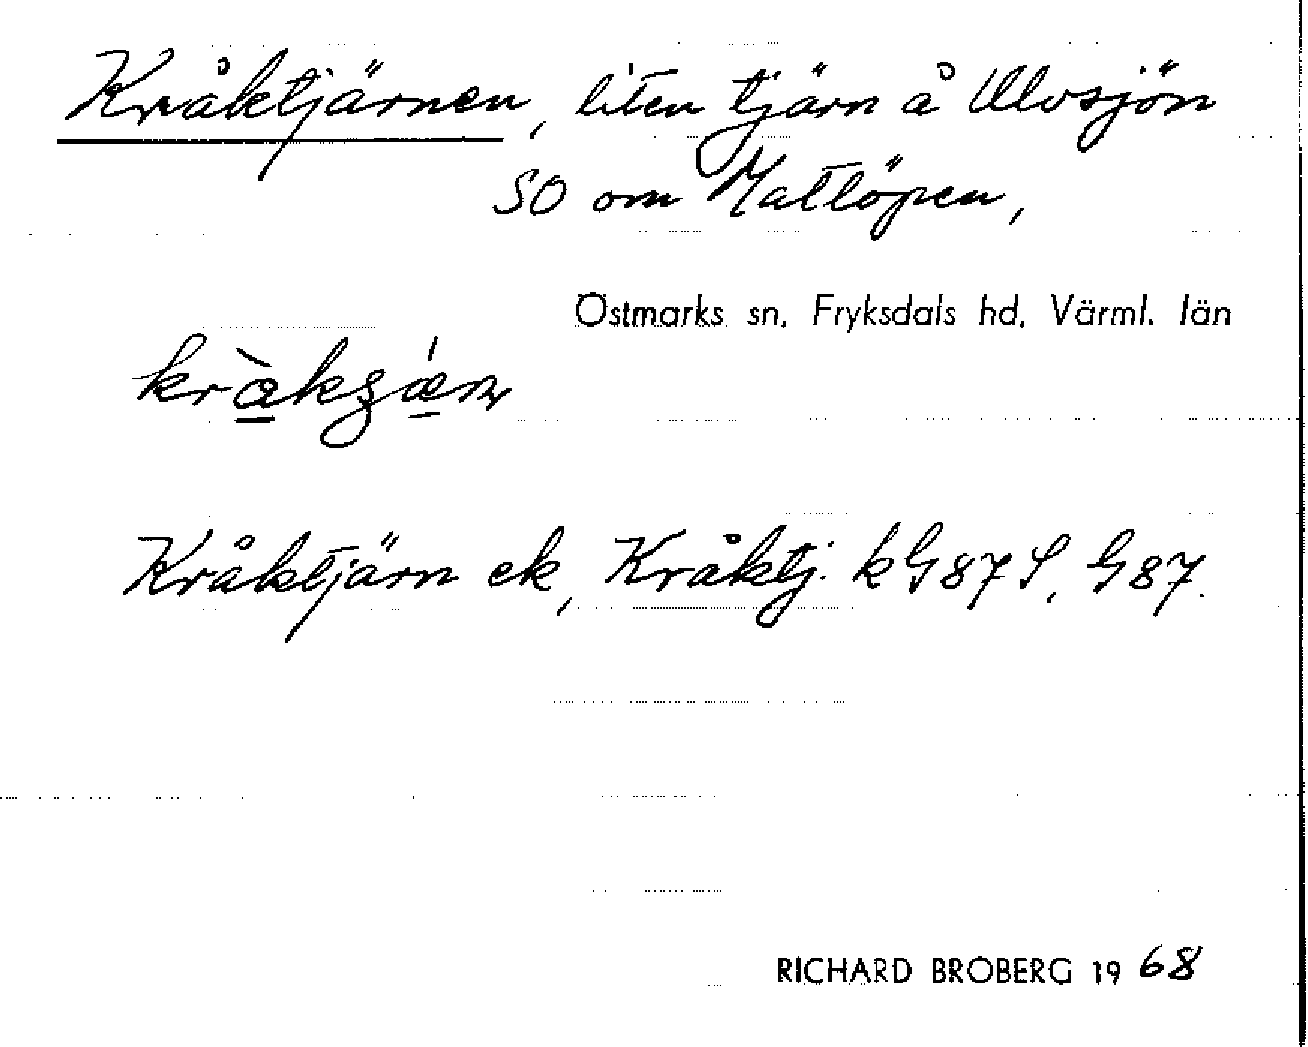 Kråktjärnen, liten tjärn å Ulvsjön
SO om Mattöpen,
Östmarks sn, Fryksdals hd, Värml. län
Kråktjärn ek, Kråktj. k G87S, G87.
RICHARD BROBERG 1968